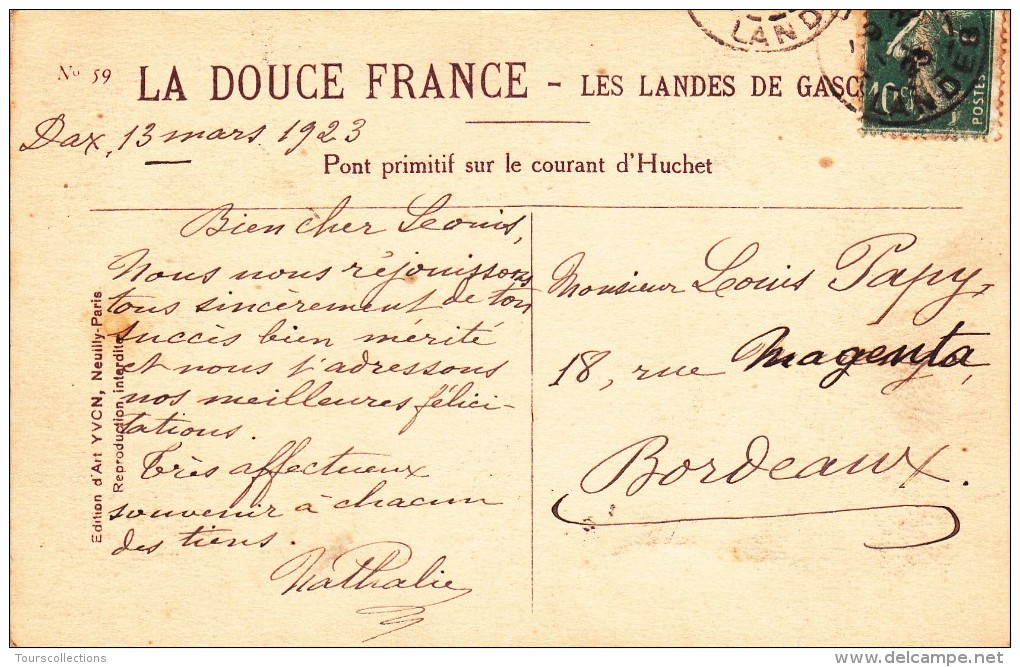 No 59
LA DOUCE FRANCE - LES LANDES DE GASC
Dax, 13 mars 1923
Pont primitif sur le courant d'Huchet
Bien cher Leouis,
Nous nous réjouissons
tous sincèrement de ton
succès bien mérité
et nous t'adressons
nos meilleures félici-
tations.
Très affectueux
souvenir à chacun
des tiens.
Nathalie
Monsieur Louis Papy,
18, rue Magenta,
Bordeaux.
Edition d'Art YVON, Neuilly-Paris
Reproduction interdite
LAND
LANDES
10c
POSTES
Tourscollections
delcampe.net